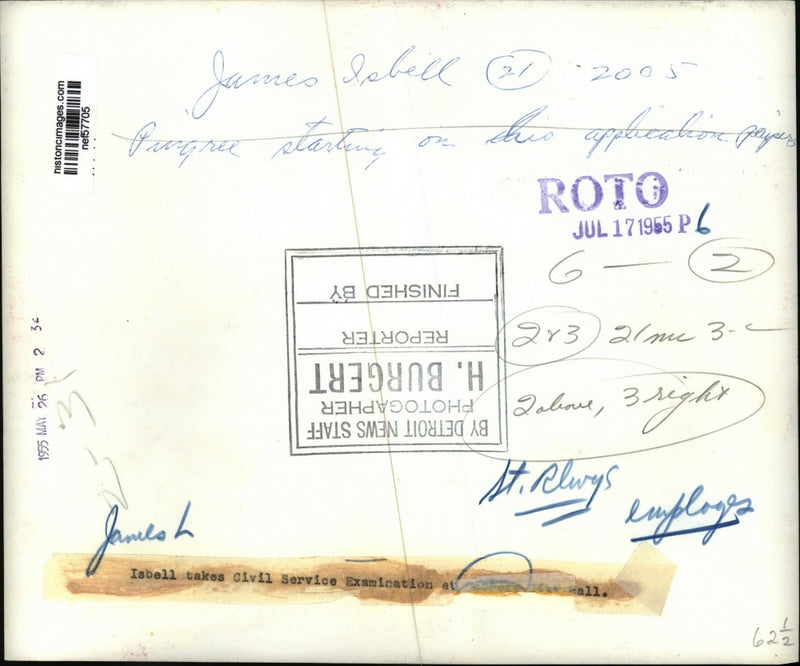 James Isbell (21) 2005
Pingree starting on his application papers
historicimages.com
nef57705
ROTO
JUL 17 1955 P 6
6 — 2
2 & 3 21
2 above, 3 right
BY DETROIT NEWS STAFF
PHOTOGAPHER
H. BURGERT
REPORTER
FINISHED BY
1955 MAY 26 PM 2 34
St. Rlwys
employes
James L
Isbell takes Civil Service Examination at
62 1/2